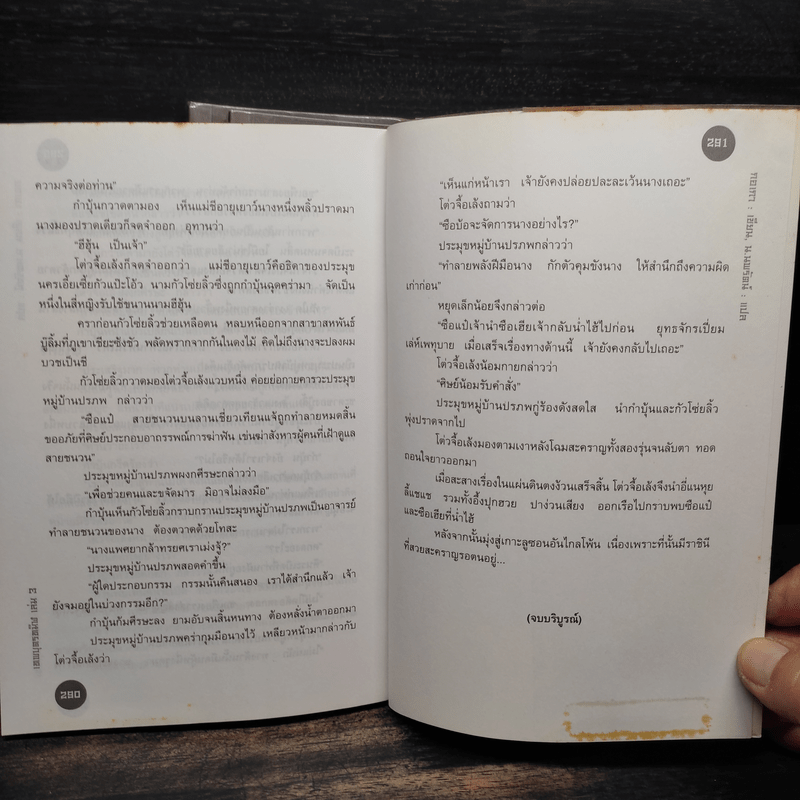 ความจริงต่อท่าน"
กำบุ้นกวาดตามอง เห็นแม่ชีอายุเยาว์นางหนึ่งพลิ้วปราดมา
นางมองปราดเดียวก็จดจำออก อุทานว่า
"ฮีฮุ้น เป็นเจ้า"
โต่วจื้อเล้งก็จดจำออกว่า แม่ชีอายุเยาว์คือธิดาของประมุข
นครเอี้ยเซี้ยกัวแป๊ะโอ้ว นามกัวโซ่ยลิ้วซึ่งถูกกำบุ้นฉุดคร่ามา จัดเป็น
หนึ่งในสี่หญิงรับใช้ขนานนามฮีฮุ้น
คราก่อนกัวโซ่ยลิ้วช่วยเหลือตน หลบหนีออกจากสาขาสหพันธ์
บู๊ลิ้มที่ภูเขาเชียะซังซัว พลัดพรากจากกันในดงไม้ คิดไม่ถึงนางจะปลงผม
บวชเป็นชี
กัวโซ่ยลิ้วกวาดตามองโต่วจื้อเล้งแวบหนึ่ง ค่อยย่อกายคารวะประมุข
หมู่บ้านปรภพ กล่าวว่า
"ซือแป๋ สายชนวนบนลานเซี่ยวเทียนแจ้ถูกทำลายหมดสิ้น
ขออภัยที่ศิษย์ประกอบอาถรรพณ์การฆ่าฟัน เข่นฆ่าสังหารผู้คนที่เฝ้าดูแล
สายชนวน"
ประมุขหมู่บ้านปรภพผงกศีรษะกล่าวว่า
"เพื่อช่วยคนและขจัดมาร มิอาจไม่ลงมือ"
กำบุ้นเห็นกัวโซ่ยลิ้วกราบกรานประมุขหมู่บ้านปรภพเป็นอาจารย์
ทำลายชนวนของนาง ต้องตวาดด้วยโทสะ
"นางแพศยากล้าทรยศเราเม่งจู้?"
ประมุขหมู่บ้านปรภพสอดคำขึ้น
"ผู้ใดประกอบกรรม กรรมนั้นคืนสนอง เราได้สำนึกแล้ว เจ้า
ยังจมอยู่ในบ่วงกรรมอีก?"
กำบุ้นก้มศีรษะลง ยามอับจนสิ้นหนทาง ต้องหลั่งน้ำตาออกมา
ประมุขหมู่บ้านปรภพคร่ากุมมือนางไว้ เหลียวหน้ามากล่าวกับ
โต่วจื้อเล้งว่า
290
291
"เห็นแก่หน้าเรา เจ้ายังคงปล่อยปละละเว้นนางเถอะ"
โต่วจื้อเล้งถามว่า
"ซือบ้อจะจัดการนางอย่างไร?"
ประมุขหมู่บ้านปรภพกล่าวว่า
"ทำลายพลังฝีมือนาง กักตัวคุมขังนาง ให้สำนึกถึงความผิด
เก่าก่อน"
หยุดเล็กน้อยจึงกล่าวต่อ
"ซือแป๋เจ้านำซือเฮียเจ้ากลับน่ำไฮ้ไปก่อน ยุทธจักรเปี่ยม
เล่ห์เพทุบาย เมื่อเสร็จเรื่องทางด้านนี้ เจ้ายังคงกลับไปเถอะ"
โต่วจื้อเล้งน้อมกายกล่าวว่า
"ศิษย์น้อมรับคำสั่ง"
ประมุขหมู่บ้านปรภพกู่ร้องดังสดใส นำกำบุ้นและกัวโซ่ยลิ้ว
พุ่งปราดจากไป
โต่วจื้อเล้งมองตามเงาหลังโฉมสะคราญทั้งสองรุ่นจนลับตา ทอด
ถอนใจยาวออกมา
เมื่อสะสางเรื่องในแผ่นดินตงง้วนเสร็จสิ้น โต่วจื้อเล้งจึงนำอี่แนหุย
ลี้แชแช รวมทั้งอึ้งปุกฮวย ปาง่วนเสียง ออกเรือไปกราบพบซือแป๋
และซือเฮียที่น่ำไฮ้
หลังจากนั้นมุ่งสู่เกาะลูซอนอันไกลโพ้น เนื่องเพราะที่นั้นมีราชินี
ที่สวยสะคราญรอตนอยู่...
(จบบริบูรณ์)